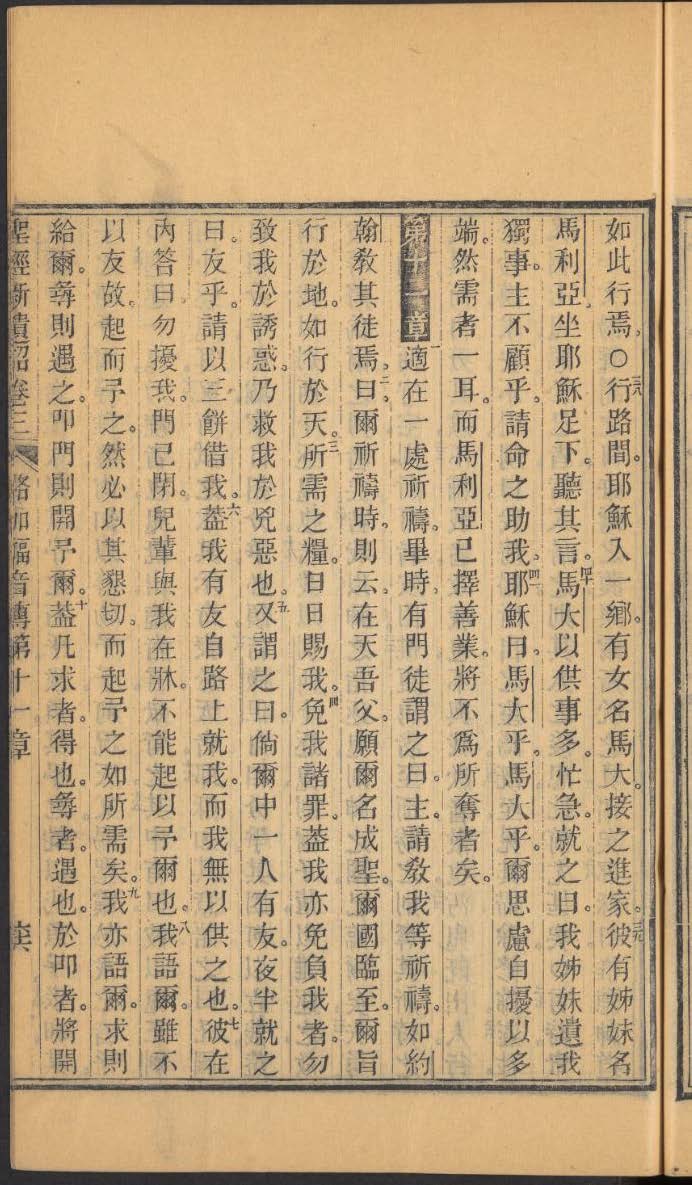 如此行焉。○三八行路間。耶穌入一鄉。有女名馬大。接之進家。三九彼有姊妹名
馬利亞坐耶穌足下。聽其言。四十馬大以供事多。忙急。就之曰。我姊妹遺我
獨事。主不顧乎。請命之助我。四一耶穌曰。馬大乎。馬大乎。爾思慮自擾以多
端。然需者一耳。而馬利亞已擇善業。將不為所奪者矣。
第十一章一適在一處祈禱。畢時。有門徒謂之曰。主。請教我等祈禱。如約
翰教其徒焉。二曰。爾祈禱時。則云。在天吾父。願爾名成聖。爾國臨至。爾旨
行於地。如行於天。三所需之糧。日日賜我。四免我諸罪。葢我亦免負我者。勿
致我於誘惑。乃救我於兇惡也。五又謂之曰。倘爾中一人有友。夜半就之
曰。友乎。請以三餅借我。六葢我有友自路上就我。而我無以供之也。七彼在
內答曰勿擾我。門已閉。兒輩與我在牀。不能起以予爾也。八我語爾。雖不
以友故。起而予之。然必以其懇切。而起予之如所需矣。九我亦語爾。求則
給爾。尋則遇之。叩門則開予爾。十葢凡求者。得也。尋者。遇也。於叩者。將開
聖經新遺詔卷三 路加福音傳第十一章